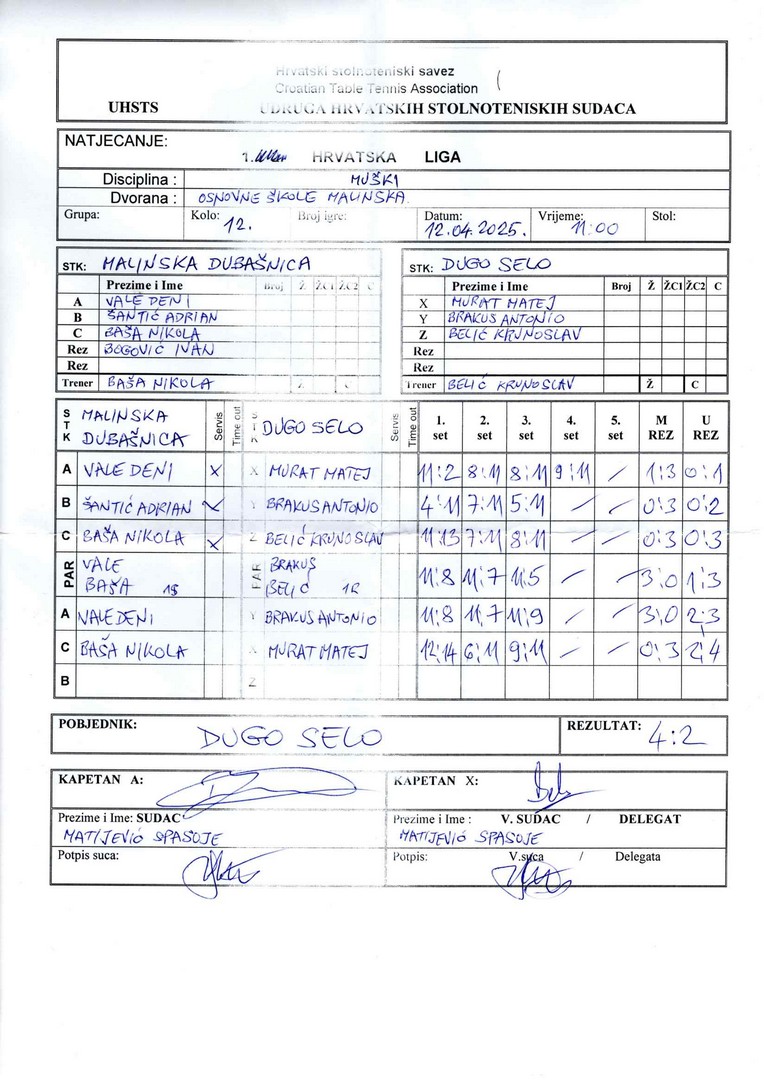 Hrvatski stolnoteniski savez
Croatian Table Tennis Association
UHSTS UDRUGA HRVATSKIH STOLNOTENISKIH SUDACA
NATJECANJE:
1. HRVATSKA LIGA
Disciplina : MUŠKI
Dvorana : OSNOVNE ŠKOLE MALINSKA.
Grupa: Kolo: 12. Broj igre: Datum: 12.04.2025. Vrijeme: 11:00 Stol:
STK: MALINSKA DUBAŠNICA STK: DUGO SELO
Prezime i Ime Broj Ž ŽC1 ŽC2 C Prezime i Ime Broj Ž ŽC1 ŽC2 C
A VALE DENI X MURAT MATEJ
B ŠANTIĆ ADRIAN Y BRAKUS ANTONIO
C BAŠA NIKOLA Z BELIĆ KRUNOSLAV
Rez BOGOVIĆ IVAN Rez
Rez Rez
Trener BAŠA NIKOLA Ž C Trener BELIĆ KRUNOSLAV Ž C
STK MALINSKA DUBAŠNICA Servis Time out STK DUGO SELO Servis Time out 1. set 2. set 3. set 4. set 5. set M REZ U REZ
A VALE DENI X X MURAT MATEJ 11:2 8:11 8:11 9:11 / 1:3 0:1
B ŠANTIĆ ADRIAN X Y BRAKUS ANTONIO 4:11 7:11 5:11 / / 0:3 0:2
C BAŠA NIKOLA X Z BELIĆ KRUNOSLAV 11:13 7:11 8:11 / / 0:3 0:3
PAR VALE BAŠA 1S PAR BRAKUS BELIĆ 1R 11:8 11:7 11:5 / / 3:0 1:3
A VALE DENI Y BRAKUS ANTONIO 11:8 11:7 11:9 / / 3:0 2:3
C BAŠA NIKOLA X MURAT MATEJ 12:14 6:11 9:11 / / 0:3 2:4
B Z
POBJEDNIK: DUGO SELO REZULTAT: 4:2
KAPETAN A: KAPETAN X:
Prezime i Ime: SUDAC Prezime i Ime : V. SUDAC / DELEGAT
MATIJEVIĆ SPASOJE MATIJEVIĆ SPASOJE
Potpis suca: Potpis: V.suca / Delegata